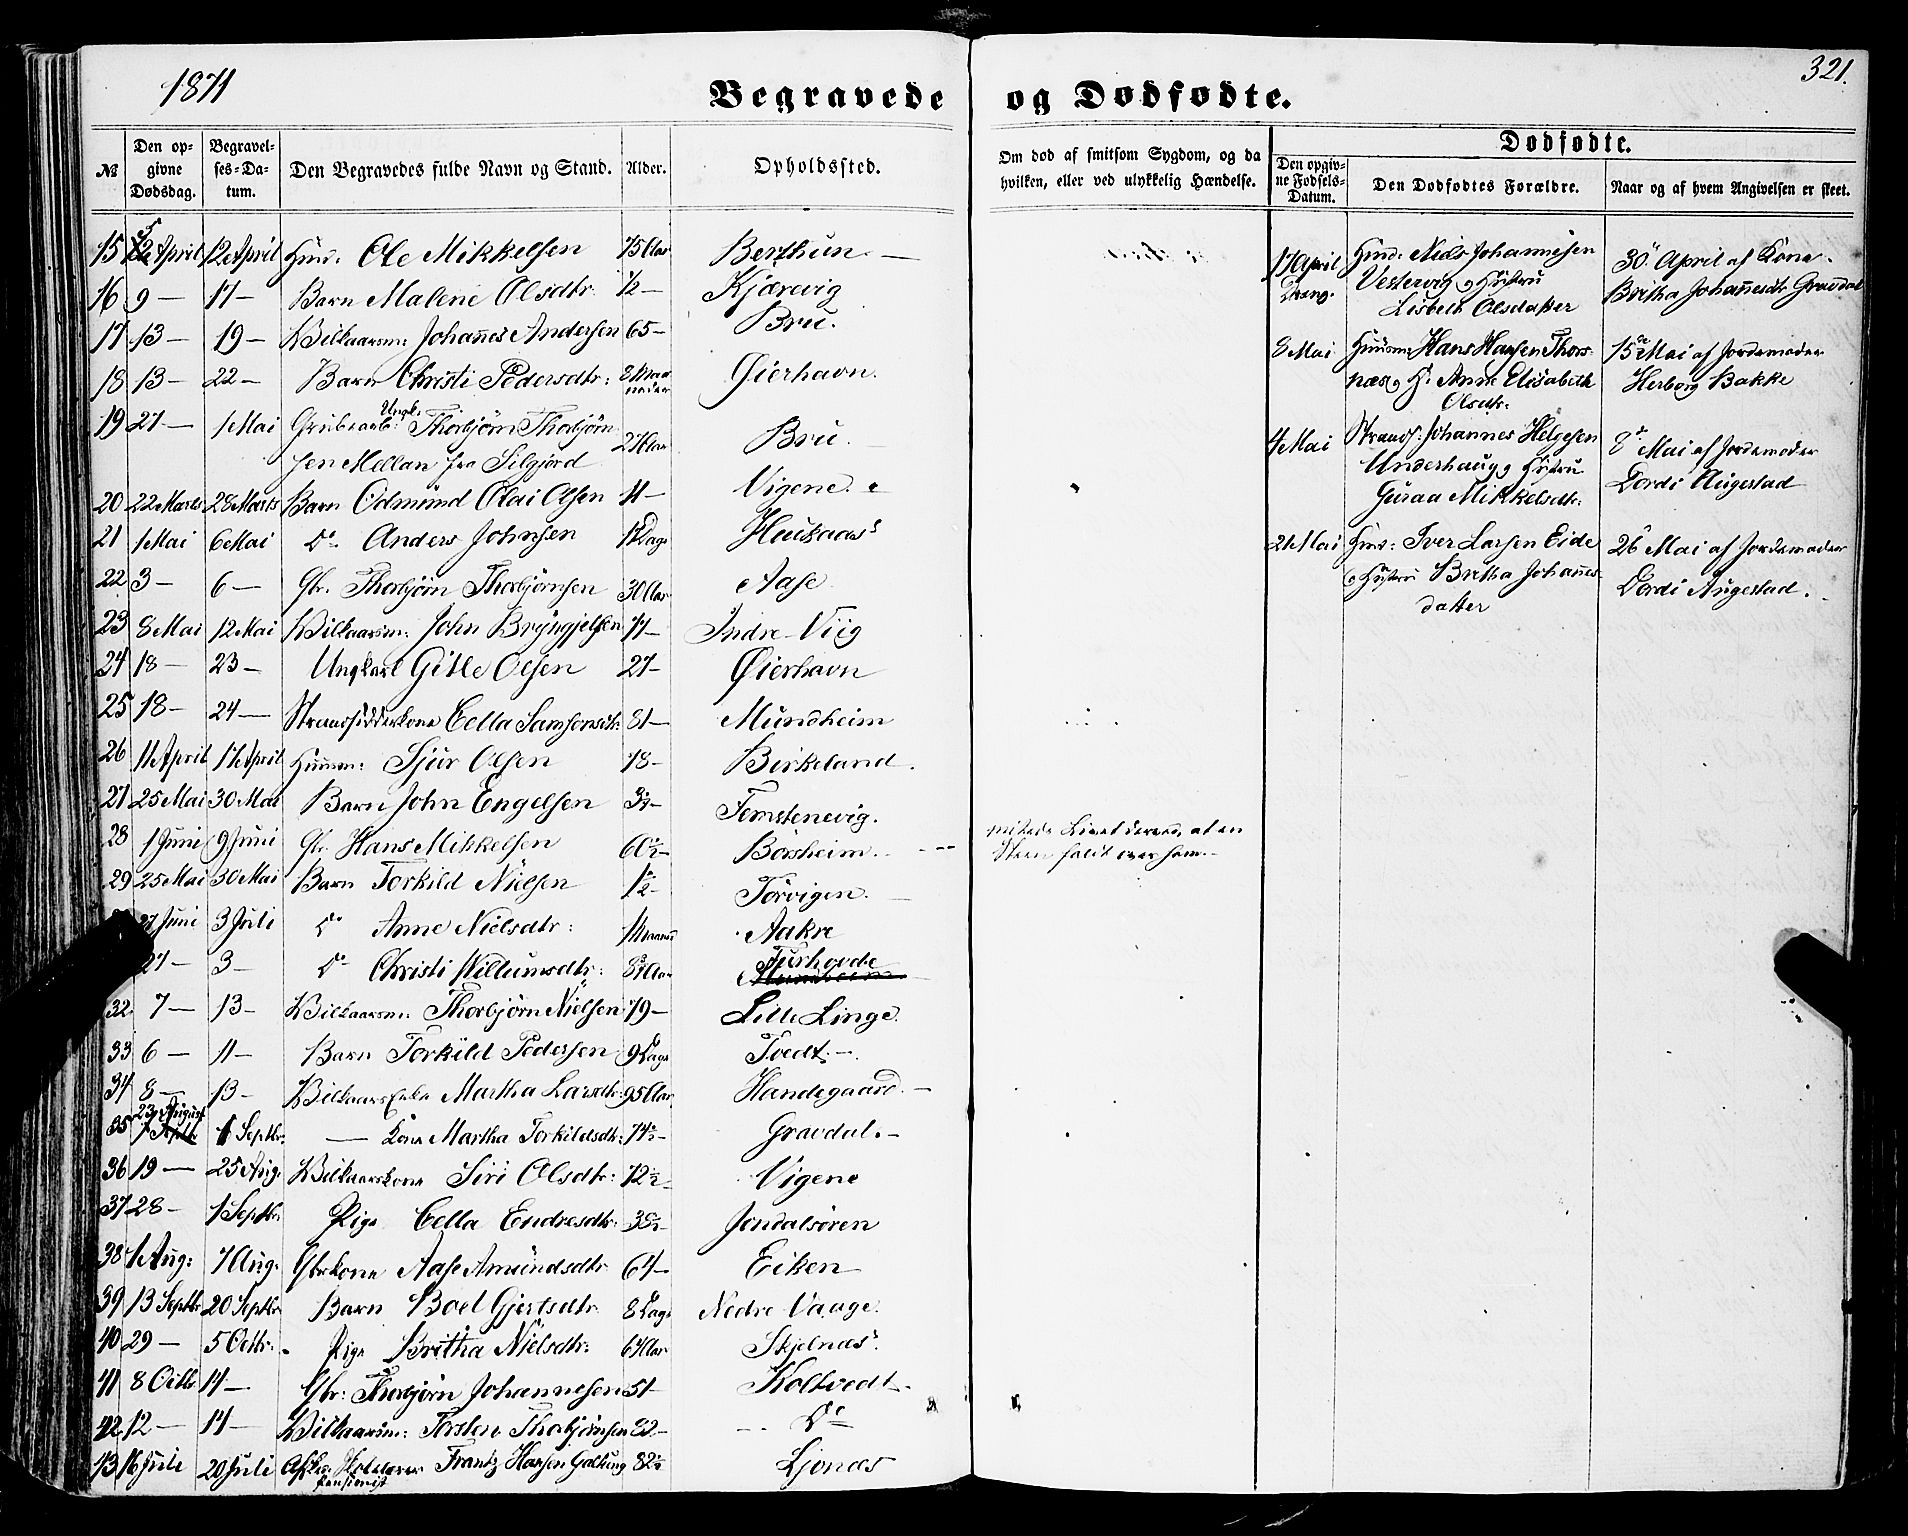 1871
Begravede og Dødfødte.
321.
№
Den opgivne Dødsdag.
Begravelses-Datum.
Den Begravedes fulde Navn og Stand.
Alder.
Opholdssted.
Om død af smitsom Sygdom, og da hvilken, eller ved ulykkelig Hændelse.
Dødfødte.
Den opgivne Fødsels-Datum.
Den Dødfødtes Forældre.
Naar og af hvem Angivelsen er skeet.
15 April 12 April Huusm: Ole Mikkelsen 75 Aar Berthun
16 9 — 17 — Barn Malene Olsdtr: ½ — Kjærevig
17 13 — 19 — Kilkaarsm: Johannes Andersen 65 — Bru.
18 13 — 22 — Barn Christi Pedersdtr: 8 Maaneder Øierhavn.
19 27 — 1 Mai Grubearb: Ungk. Thorbjørn Thorbjørn
sen Mellan fra Silgjord 27 Aar Bru.
20 22 Marts 28 Marts Barn Odmund Olai Olsen 11 — Vigene.
21 1 Mai 6 Mai Do Anders Johnsen 17 Dage Huukaas
22 3 — 6 — Gbr. Thorbjörn Thorbjörnsen 30 Aar Aase
23 8 Mai 12 Mai Kilkaarsm: John Bryngjelsen 77 — Indre-Viig
24 18 — 23 — Ungkarl Gitle Olsen 27 — Øierhavn
25 18 — 24 — Strandsidderkone Cella Samsonsdtr: 81 — Mundheim
26 11 April 17 April Huusm: Sjur Olsen 78 — Birkeland.
27 25 Mai 30 Mai Barn John Engelsen 3½ — Femstenevig.
28 1 Juni 9 Juni Gbr. Hans Mikkelsen 60½ — Börsheim. mistede Livet derved, at en
Steen faldt over ham.
29 25 Mai 30 Mai Barn Torkild Nielsen 1½ — Torvigen.
27 Juni 3 Juli Do Anne Nielsdtr: Aakre
27 — 3 — Do Christi Willumsdtr: Furhovde
32 7 — 13 — Kilkaarsm: Thorbjörn Nielsen 79 — Lille Linge.
33 6 — 11 — Barn Torkild Pedersen 9 Dage Tvedt.
34 8 — 13 — Kilkaarsenke Martha Larsdtr: 95 Aar Handegaard.
35 23 August 7 Septbr 1 Septbr: — Kone Martha Torkildsdtr: 74½ Gravdal.
36 19 — 25 Aug. Kilkaarskone Siri Olsdtr: 72½ Vigene
37 28 — 1 Septbr. Pige Cella Endresdtr: 38½ Jondalsören
38 1 Aug: 7 Aug. Gbrkone Aase Amundsdtr 64 — Eiken
39 13 Septbr 20 Septbr Barn Boel Gjertsdtr. 8 Dage Nedre Vaage.
40 29 — 5 Octbr: Pige Britha Nielsdtr: 64 Aar Skjelnæs.
41 8 Octbr 14 — Gbr: Thorbjörn Johannesen 51 Koltvedt.
42 12 — 14 — Kilkaarsm: Torsten Thorbjörnsen 82 — Do
43 16 Juli 20 Juli Pensionist Frantz Hansen Galtung 82½ Ljonæs
17 April Dreng. Huusm: Niels Johannesen
Vestervig og Hustru
Lisbeth Olsdatter
30 April af Kone
Britha Johannesdtr Gravdal
8 Mai Huusm: Hans Hansen Thors-
næs og H: Anne Elisabeth
Olsdtr.
15de Mai af Jordemoder
Herborg Bakke
4 Mai Strands: Johannes Helgesen
Underhaug og Hustru
Guraa Mikkelsdtr:
8de Mai af Jordemoder
Dordi Augestad
21 Mai Huusm: Iver Larsen Eide
og Hustru Britha Johannes-
datter
26 Mai af Jordemoder
Dordi Augestad.